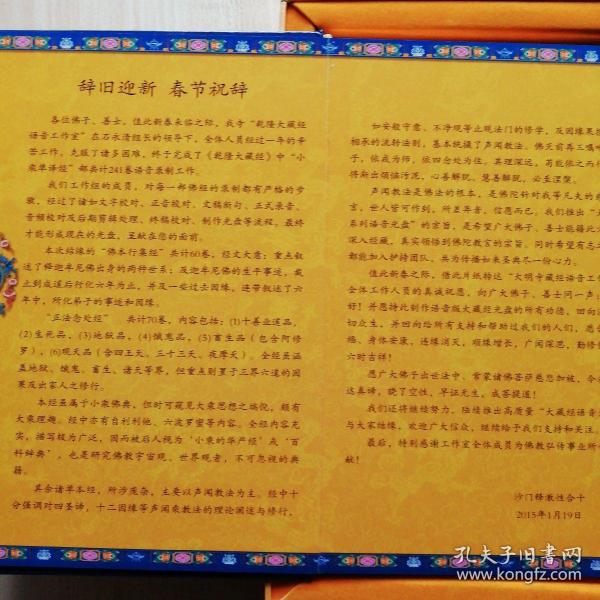 辞旧迎新 春节祝辞
各位佛子、善士，值此新春来临之际，我寺“乾隆大藏经
语音工作室”在石永清组长的领导下，全体人员经过一年的辛
苦工作，克服了诸多困难，终于完成了《乾隆大藏经》中“小
乘单译经”部共计241卷语音录制工作。
我们工作组的成员，对每一部佛经的录制都有严格的步
骤，经过了诸如文字校对、正音校对、文稿断句、正式录音、
音频校对及后期剪辑处理、终稿校对、制作光盘等流程，最终
才能形成现在的光盘，呈献在您的面前。
本次结缘的“佛本行集经”共计60卷，经文大意：重点叙
述了释迦牟尼佛出身的两种世系；及迦牟尼佛的生平事迹，截
止到成道后行化六年为止，并及一些过去因缘，连带叙述了六
年中，所化弟子的事迹和因缘。
“正法念处经” 共计70卷，内容包括：(1)十善业道品，
(2)生死品，(3)地狱品，(4)饿鬼品，(5)畜生品（包含阿修
罗），(6)观天品（含四王天，三十三天、夜摩天）。全经虽涵
盖地狱、饿鬼、畜生、诸天等界，但重点则置于三界六道的因
果及出家人之修行。
本经虽属于小乘佛典，但时可窥见大乘思想之端倪，颇有
大乘理趣。经中亦有自利利他、六波罗蜜等内容。全经内容充
实，描写极为广泛，因而被后人视为‘小乘的华严经’或‘百
科辞典’，也是研究佛教宇宙观、世界观者，不可忽视的典
籍。
其余诸单本经，所涉庞杂，主要以声闻教法为主。经中十
分强调对四圣谛，十二因缘等声闻乘教法的理论阐述与修行，
如安般守意、不净观等止观法门的修学，及因缘果报
相承的流转法则，基本统摄了声闻教法。佛灭前再三嘱咐
子，依戒为师，依四念处为住，其理深远，苟能依之而行
将断出烦恼污泥，心善解脱，慧善解脱，必至涅槃。
声闻教法是佛法的根本，是佛陀针对我等凡夫的
言，世人皆可作到，所差异者，信愿而已。我们推出“
系列语音光盘”的宗旨，是希望广大佛子、善士能籍此
深入经藏，真实领悟到佛陀教言的宗旨。同时希望有志
都能加入护持团队，共为传播如来圣典尽一份心力。
值此新春之际，借此片纸转达“大明寺藏经语音工
全体工作人员的真诚祝愿，向广大佛子、善士问一声：
好！并愿持此制作语音版大藏经光盘的所有功德，回向
切众生，并回向给所有支持和帮助过我们的人们，悉
烙、身体安康，违缘消灭，顺缘增长，广闻深思，勤修
六时吉祥！
愿广大佛子出世法中、常蒙诸佛菩萨慈悲加被，令
达真谛，晓了空性，早证无生，成菩提道！
我们还将继续努力，陆续推出高质量“大藏经语音
与大家结缘，欢迎广大信众，继续给于我们支持和关注。
最后，特别感谢工作室全体成员为佛教弘传事业所
献！
沙门释教性合十
2015年1月19日
孔夫子旧书网
www.kongfz.com